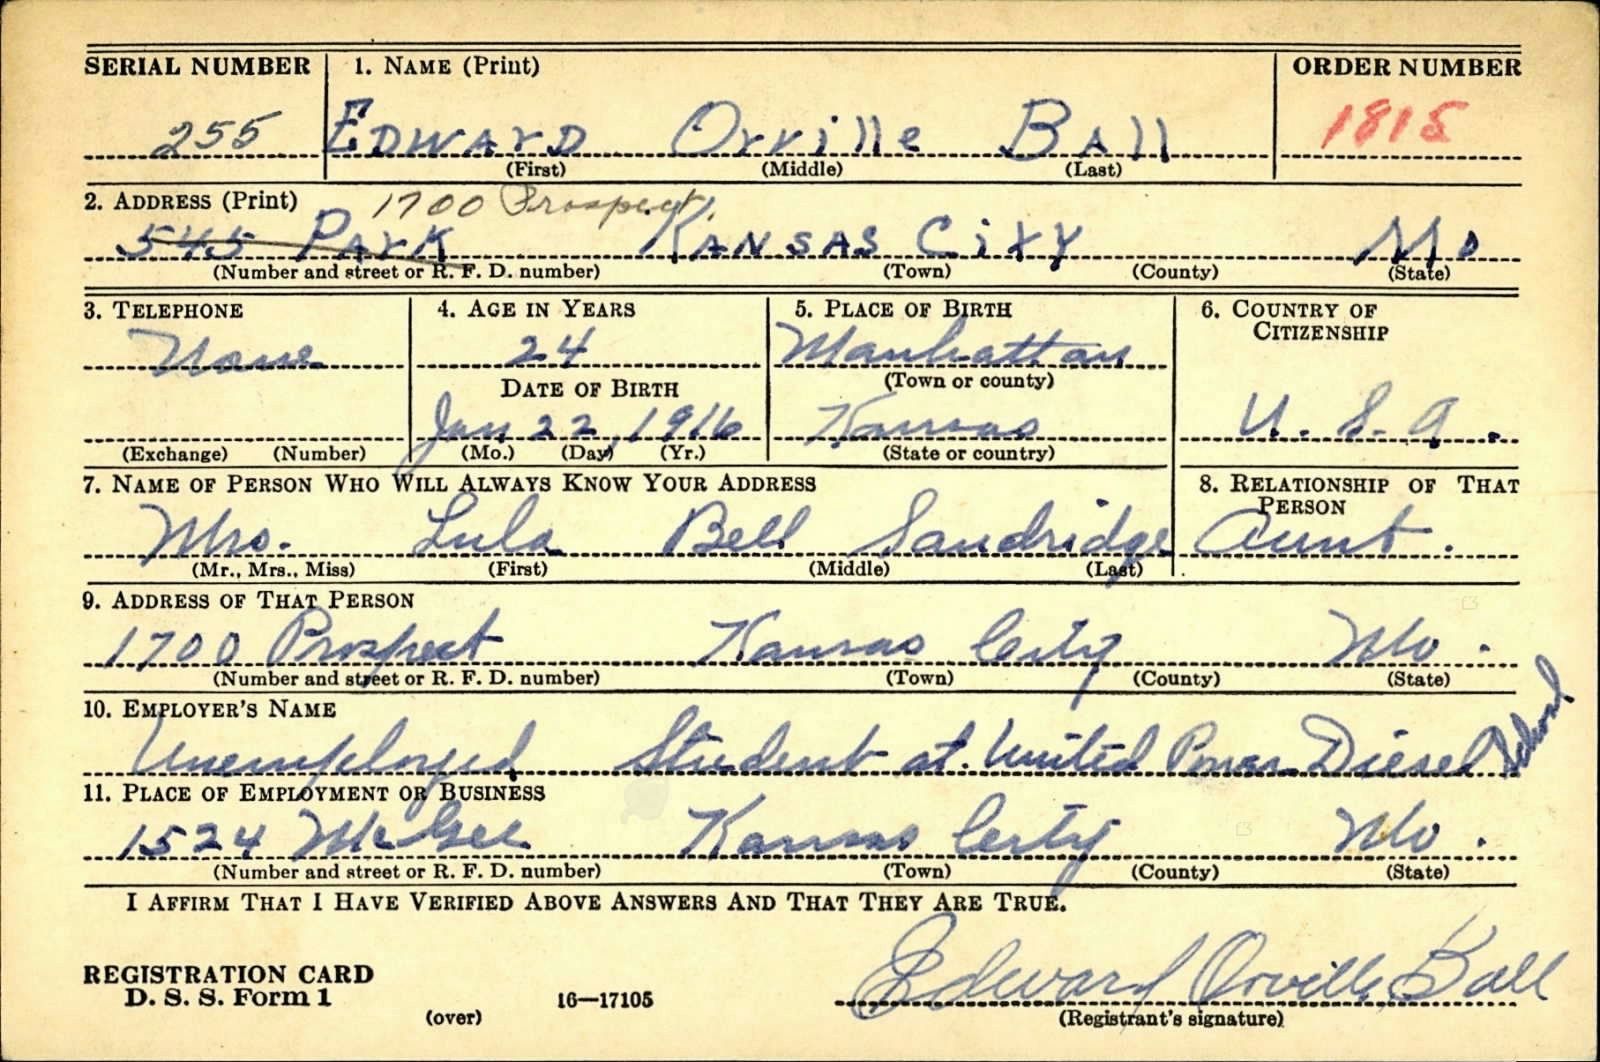 SERIAL NUMBER 1. NAME (Print) ORDER NUMBER
255 EDWArD Orville BAll 1815
(First) (Middle) (Last)
2. ADDRESS (Print) 1700 Prospect.
545 PArK KANSAS CiTY Mo
(Number and street or R. F. D. number) (Town) (County) (State)
3. TELEPHONE 4. AGE IN YEARS 5. PLACE OF BIRTH 6. COUNTRY OF
CITIZENSHIP
None 24 Manhattan
DATE OF BIRTH (Town or county)
Jan 22, 1916 Kansas U. S. A.
(Exchange) (Number) (Mo.) (Day) (Yr.) (State or country)
7. NAME OF PERSON WHO WILL ALWAYS KNOW YOUR ADDRESS 8. RELATIONSHIP OF THAT
PERSON
Mrs. Lula Bell Sandridge Aunt.
(Mr., Mrs., Miss) (First) (Middle) (Last)
9. ADDRESS OF THAT PERSON
1700 Prospect Kansas City Mo.
(Number and street or R. F. D. number) (Town) (County) (State)
10. EMPLOYER'S NAME
Unemployed Student at United Power Diesel School
11. PLACE OF EMPLOYMENT OR BUSINESS
1524 McGee Kansas City Mo.
(Number and street or R. F. D. number) (Town) (County) (State)
I AFFIRM THAT I HAVE VERIFIED ABOVE ANSWERS AND THAT THEY ARE TRUE.
REGISTRATION CARD
D. S. S. Form 1 Edward Orville Ball
(over) 16—17105 (Registrant's signature)